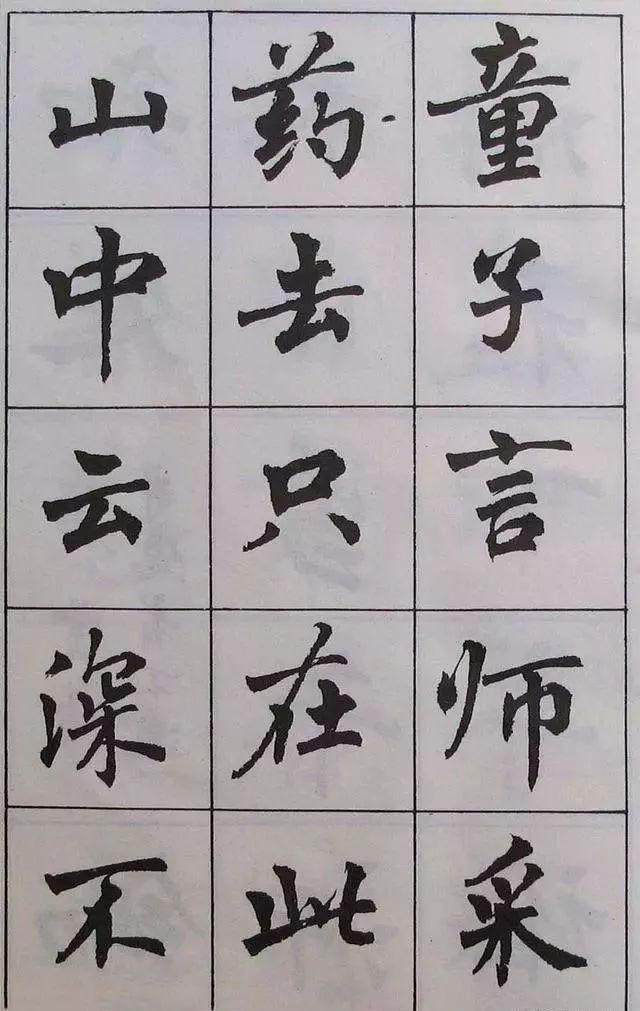 童子言师采
药去只在此
山中云深不